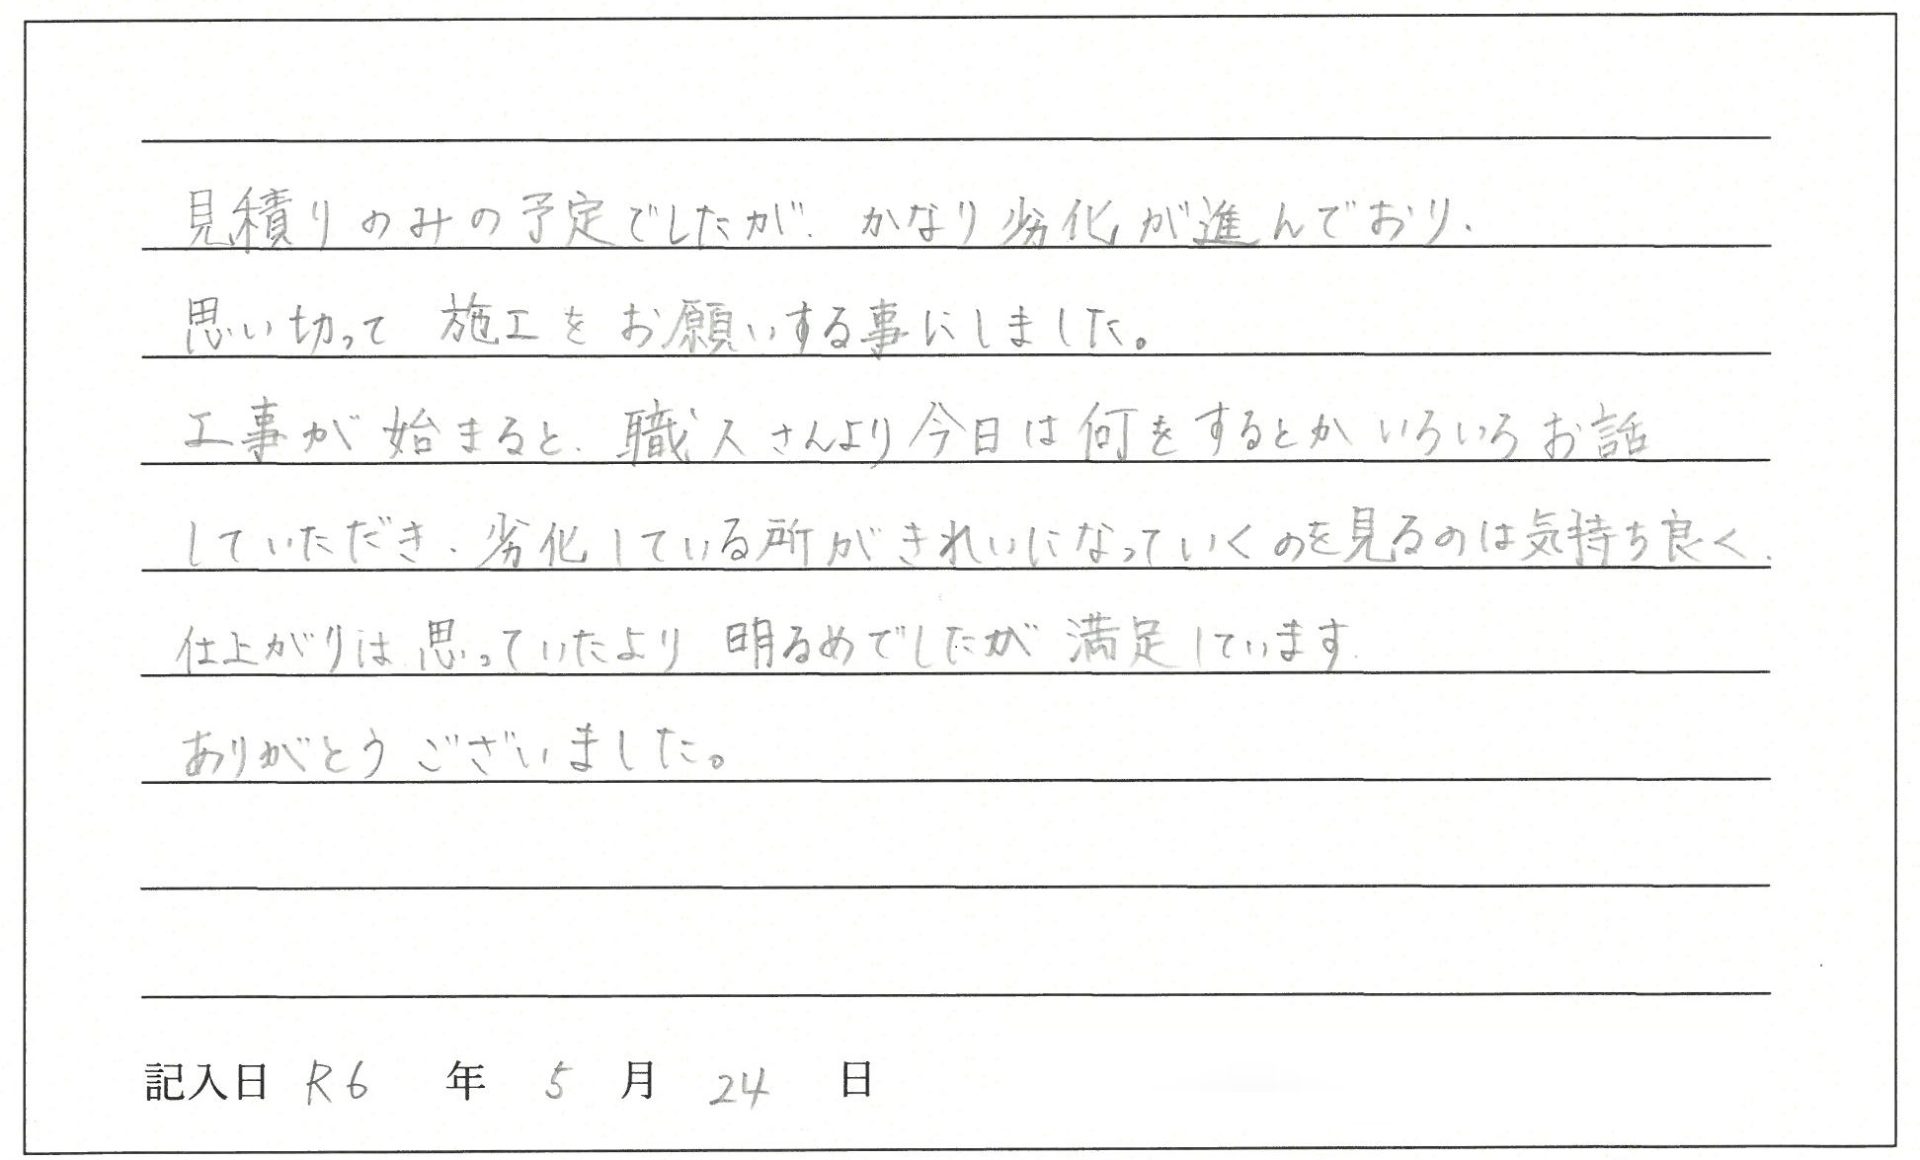 見積りのみの予定でしたが、かなり劣化が進んでおり、
思い切って 施工をお願いする事にしました。
工事が始まると、職人さんより今日は何をするとかいろいろお話
していただき、劣化している所がきれいになっていくのを見るのは気持ち良く、
仕上がりは思っていたより 明るめでしたが 満足しています
ありがとうございました。
記入日 R6 年 5 月 24 日